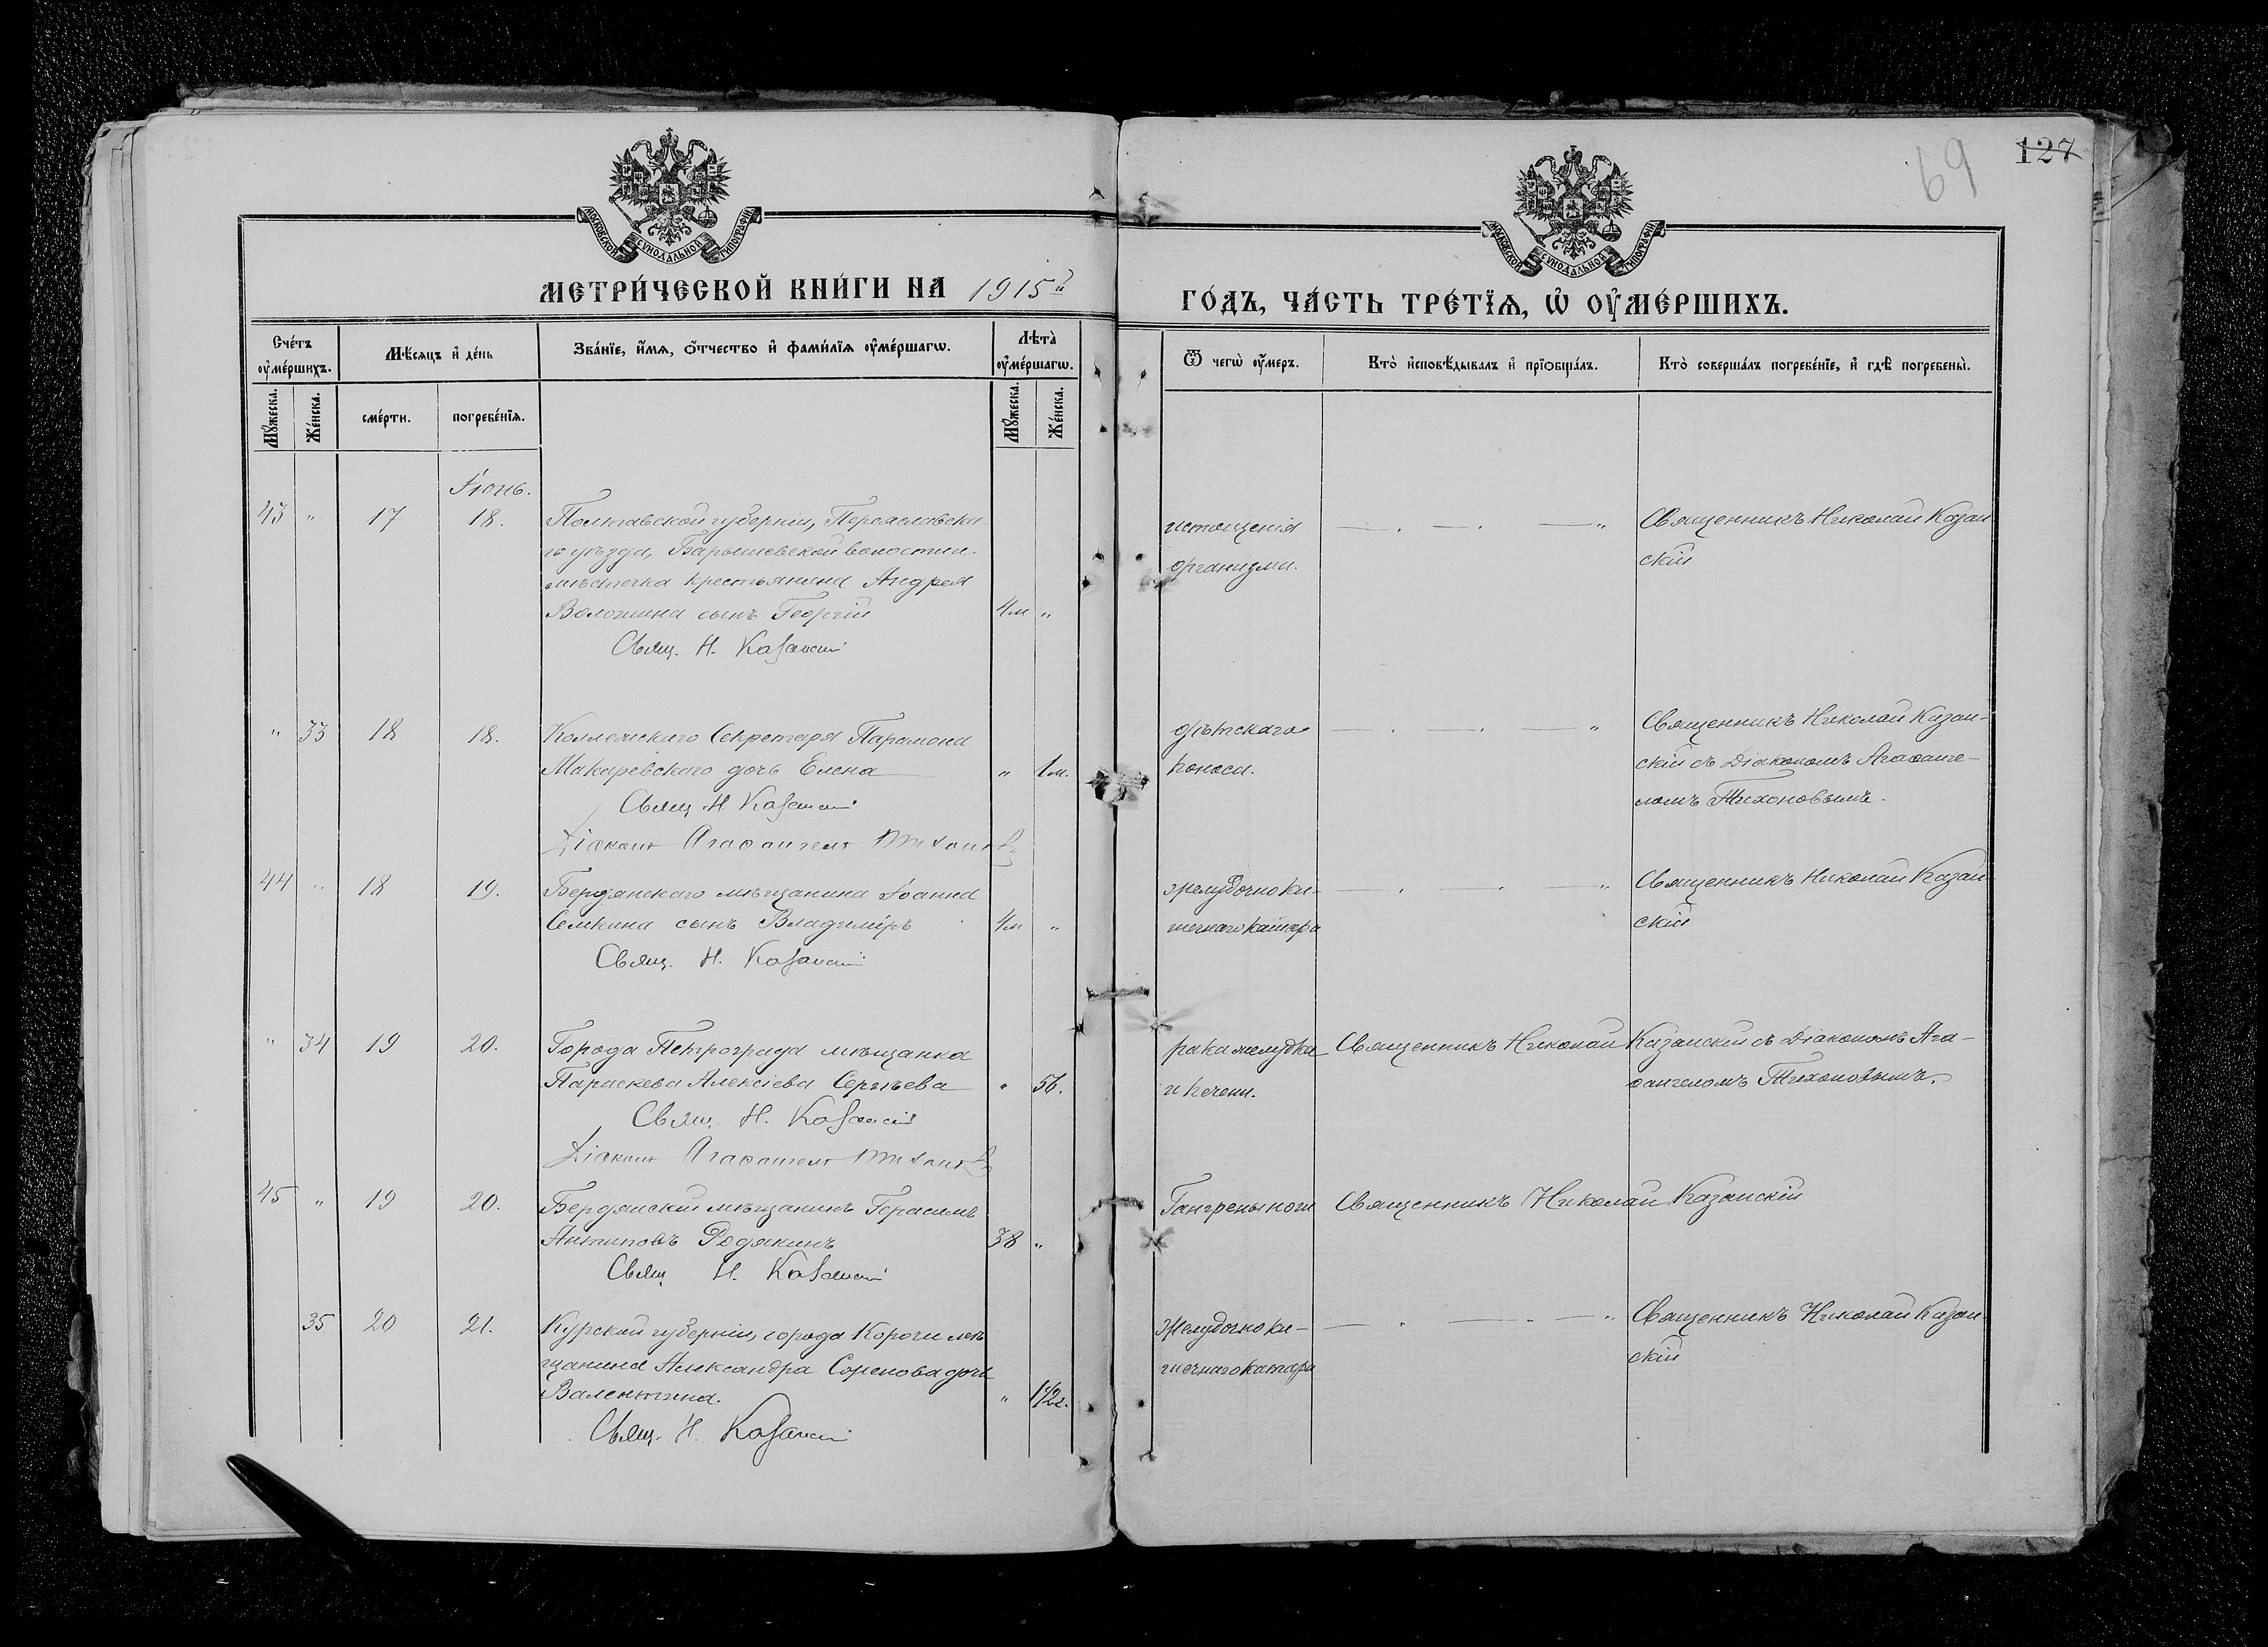 69
127
МОСКОВСКОЙ СУНОДАЛЬНОЙ ТИПОГРАФІИ
МОСКОВСКОЙ СУНОДАЛЬНОЙ ТИПОГРАФІИ
МЕТРИ́ЧЕСКОЙ КНИ́ГИ НА 1915й
ГО́ДЪ, ЧА́СТЬ ТРЕ́ТІѦ, Ѡ ОУМЕ́РШИХЪ.
Сче́тъ оуме́ршихъ.
Мѣ́сяцъ и де́нь
Зва́нїе, и́мѧ, о́тчество и фами́лїѧ оуме́ршагѡ.
Лѣта̀ оуме́ршагѡ.
Ѿ чегѡ̀ оу́меръ.
Кто̀ исповѣ́дывалъ и прїобща́лъ.
Кто̀ соверша́лъ погребе́нїе, и гдѣ̀ погребены̀.
Му́жеска.
Же́нска.
сме́рти.
погребе́нїѧ.
Му́жеска.
Же́нска.
Іюнь.
43 " 17 18. Полтавской губерніи, Переяславска
го уѣзда, Барышевской волости и
мѣстечка крестьянина Андрея
Волошина сынъ Георгій 4м "
Свящ. Н. Казанскій
истощенія
организма.
Священникъ Николай Казан
скій
" 33 18 18. Коллежскаго Секретаря Парамона
Макаревскаго дочь Елена " 1м.
Свящ Н. Казанскій
Діаконъ Агаѳангелъ Тихоновъ
дѣтскаго
поноса.
Священникъ Николай Казан-
скій съ Діакономъ Агаѳанге-
ломъ Тихоновымъ.
44 " 18 19. Бердянскаго мѣщанина Іоанна
Семкина сынъ Владиміръ 4м "
Свящ. Н. Казанскій
желудочно ки-
шечнаго катара
Священникъ Николай Казан
скій
" 34 19 20. Города Петрограда мѣщанка
Параскева Алексіева Сергѣева " 56.
Свящ. Н. Казанскій
Діаконъ Агаѳангелъ Тихоновъ
рака желудка
и печени.
Священникъ Николай Казанскій съ Діакономъ Ага-
ѳангеломъ Тихоновымъ.
45 " 19 20. Бердянскій мѣщанинъ Герасимъ
Антиповъ Родякинъ 38 "
Свящ Н. Казанскій
Гангрены ноги
Священникъ Николай Казанскій
35 20 21. Курской губерніи, города Корочи мѣ
щанина Александра дочь
Валентина. " 1½г.
Свящ. Н. Казанскій
Желудочно ки-
шечнаго катара
Священникъ Николай Казан
скій